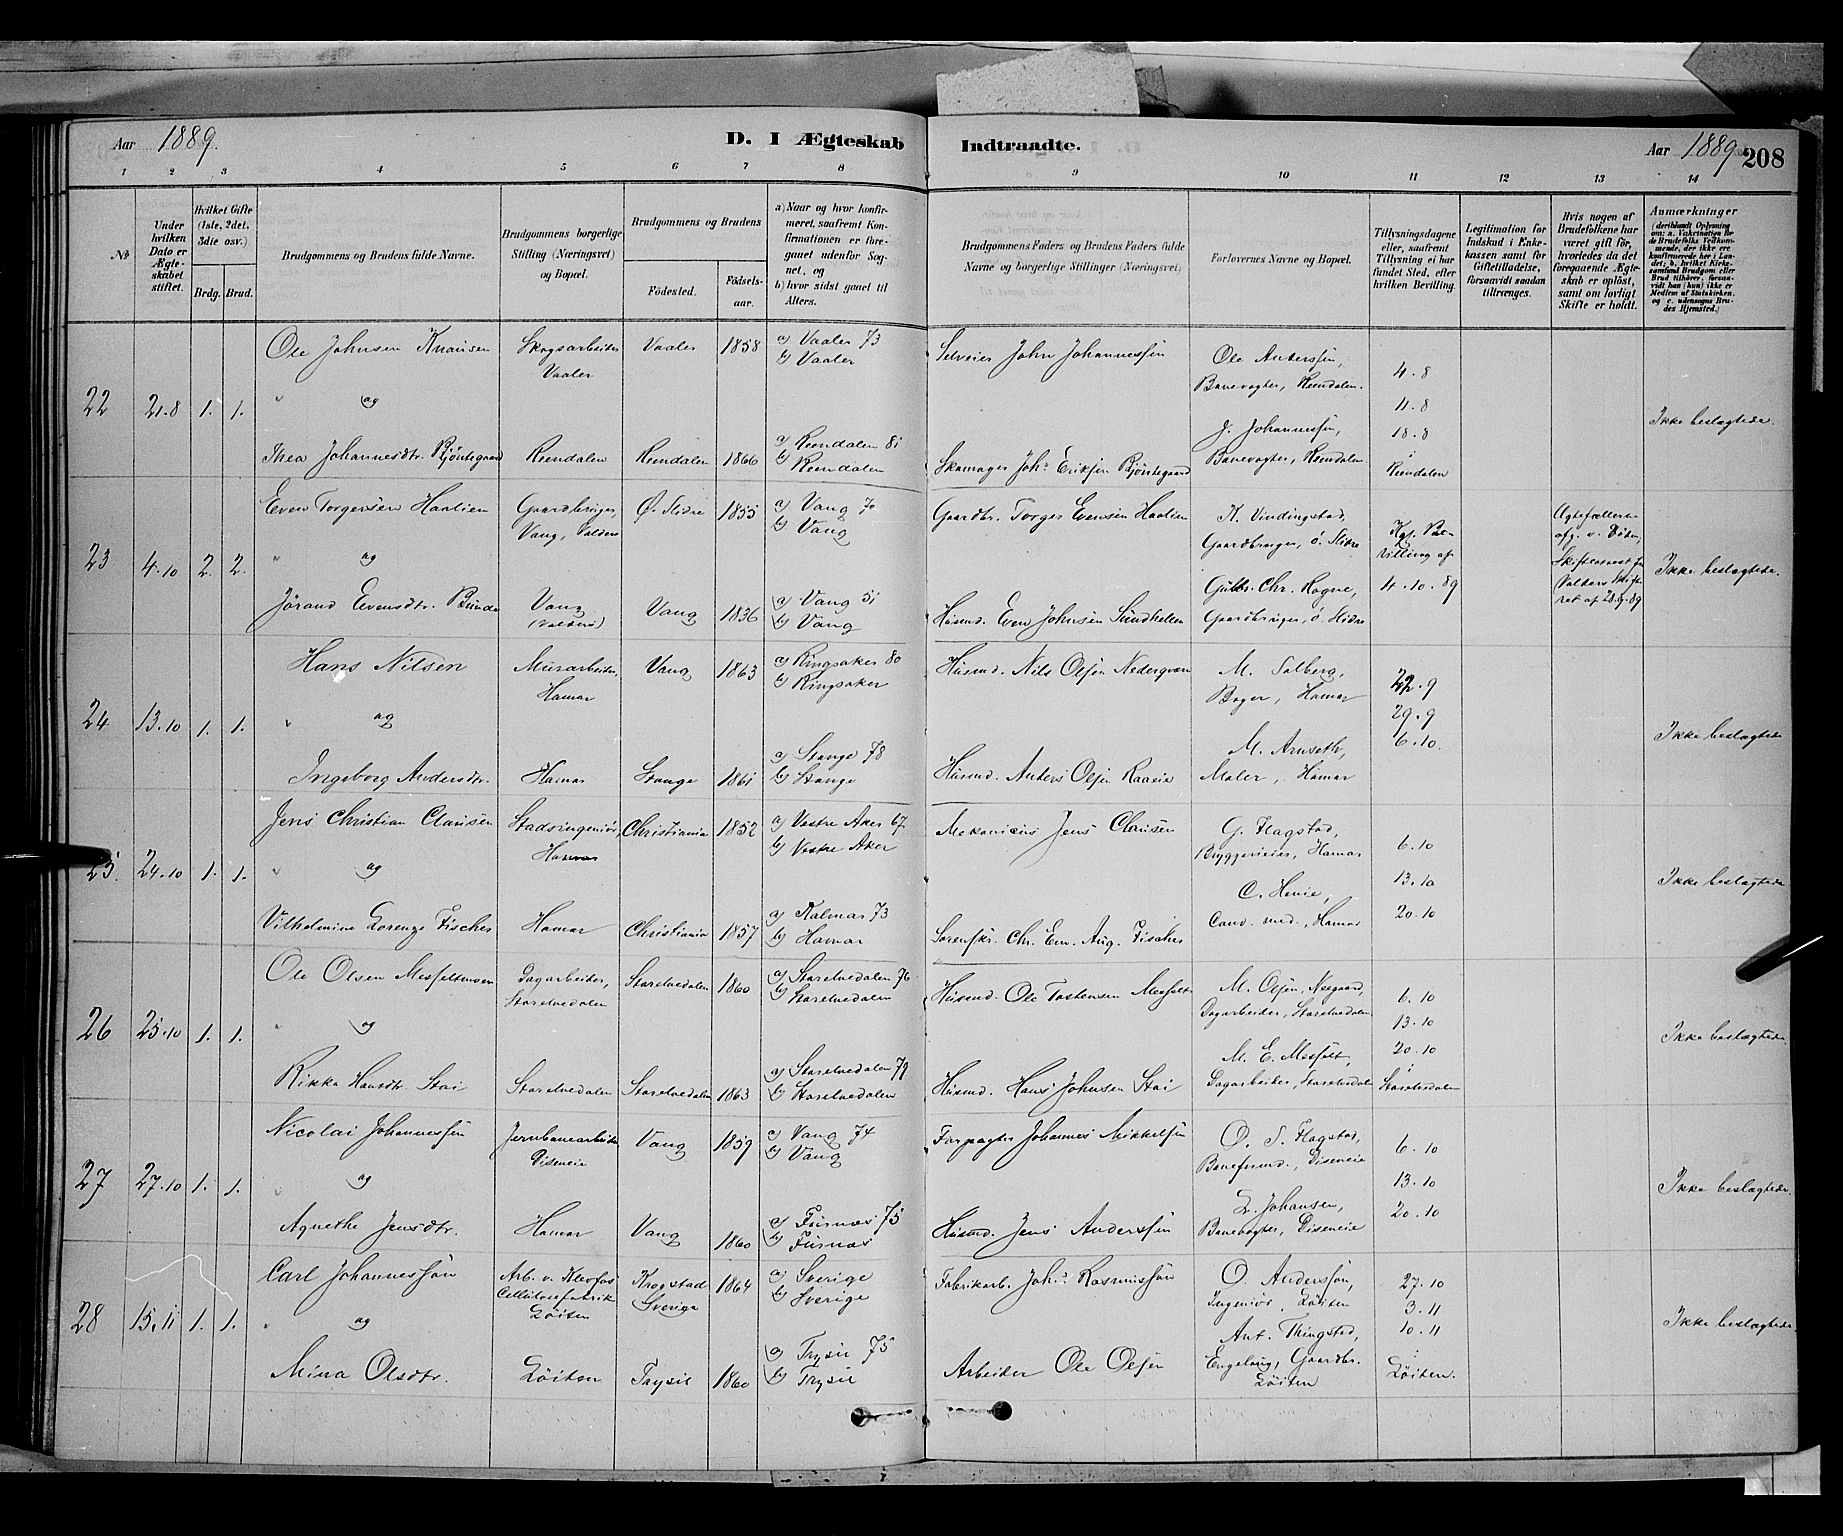 Aar 1889. D. I Ægteskab Indtraadte. Aar 1889 208
1 2 3 4 5 6 7 8 9 10 11 12 13 14
№
Under hvilken Dato er Ægteskabet stiftet.
Hvilket Gifte (1ste, 2det, 3die osv.)
Brdg. Brud.
Brudgommens og Brudens fulde Navne.
Brudgommens borgerlige Stilling (Næringsvei) og Bopæl.
Brudgommens og Brudens
Födested. Födselsaar.
a) Naar og hvor konfirmeret, saafremt Konfirmationen er foregaaet udenfor Sognet, og
b) hvor sidst gaaet til Alters.
Brudgommens Faders og Brudens Faders fulde Navne og borgerlige Stillinger (Næringsvei)
Forlovernes Navne og Bopæl.
Tillysningsdagene eller, saafremt Tillysning ei har fundet Sted, efter hvilken Bevilling.
Legitimation for Indskud i Enkekassen samt for Giftetilladelse, forsaavidt saadan tiltrænges.
Hvis nogen af Brudefolkene har været gift för, hvorledes da det foregaaende Ægteskab er oplöst, samt om lovligt Skifte er holdt.
Anmærkninger (deriblandt Oplysning om: a. Vakcination for de Brudefolks Vedkommende, der ikke ere konfirmerede her i Landet; b. hvilket Kirkesamfund Brudgom eller Brud tilhörer, forsaavidt han (hun) ikke er Medlem af Statskirken, og c. udensogns Brudes Hjemsted.)
22 21.8 1. 1.
Ole Johnsen Knausen Skogsarbeider Vaaler Vaaler 1858 a) Vaaler 73 b) Vaaler
Selveier John Johannessen
Ole Anderssen, Banevogter, Rendalen.
" og
J. Johannessen, Banevogter, Rendalen
4.8
11.8
18.8
i Rendalen
Ikke beslægtede.
Thea Johannesdtr. Bjöntegaard Rendalen Rendalen 1866 a) Rendalen 81 b) Rendalen
Skomager Johs Eriksen Bjöntegaard
23 4.10 2. 2.
Even Torgersen Haalien Gaardbruger, Vang, Valders Ø. Slidre 1855 a) Vang 70 b) Vang
Gaardbr. Torger Evensen Haalien
K. Vindingstad, Gaardbruger, ö. Slidre
" og
Kgl. Bevilling af 4.10.89
Ægtefællerne afg. v. Döden, Skifteattest fra Valders Skifteret af 28.9.89
Ikke beslægtede.
Jörand Evensdtr. Bunde Vang (Valders) Vang 1836 a) Vang 51 b) Vang
Husmd. Even Johnsen Sundhellen
Gulbr. Chr. Hagne, Gaardbruger, ö. Slidre
24 13.10 1. 1.
Hans Nilsen Murarbeider, Hamar Vang 1863 a) Ringsaker 80 b) Ringsaker
Husmd. Nils Olsen Nedergvan
M. Solberg, Bager, Hamar
" og
22.9
29.9
6.10.
Ikke beslægtede
Ingeborg Andersdtr. Hamar Stange 1861 a) Stange 78 b) Stange
Husmd. Anders Olsen Raaeie
M. Arnseth, Maler, Hamar
25. 24.10 1. 1.
Jens Christian Clausen Stadsingeniör, Hamar Christiania 1852 a) Vestre Aker 67 b) Vestre Aker
Mekanicus Jens Clausen
G. Flagstad, Bryggerieier, Hamar
" og
C. Henie, Cand. med., Hamar
6.10
13.10
20.10
Ikke beslægtede
Vilhelmine Lorenze Fischer Hamar Christiania 1857 a) Kalmar 73 b) Hamar
Sorenskr. Chr. Em. Aug. Fischer
26 25.10 1. 1.
Ole Olsen Messeltmoen Dagarbeider, Storelvedalen Storelvedalen 1860 a) Storelvedalen 76 b) Storelvedalen
Husmd. Ole Tostensen Messelt
M. Olsen, Neegaard, Dagarbeider, Storelvedalen
" og
M. E. Messelt, Dagarbeider, Storelvedalen
6.10
13.10
20.10
i Storelvedalen
Ikke beslægtede.
Rikka Hansdtr. Stai Storelvedalen Storelvedalen 1863 a) Storelvedalen 79 b) Storelvedalen
Husmd. Hans Johnsen Stai
27 27.10 1. 1.
Nicolai Johannessen Jernbanearbeider Diseneie Vang 1859 a) Vang 74 b) Vang
Forpagter Johannes Mikkelsen
O. S. Flagstad, Baneformd., Diseneie
" og
L. Johansen, Banevogter, Diseneie
6.10
13.10
20.10
Ikke beslægtede.
Agnethe Jensdtr. Hamar Vang 1860 a) Furnæs 75 b) Furnæs
Husmd. Jens Anderssen
28 15.11 1. 1.
Carl Johannessön Arb. v. Klevfos Cellulosefabrik Löiten Krogstad Sverige 1864 a) Sverige b) Sverige
Fabrikarb. Johs Rasmussön
O. Anderssön, Ingeniör, Löiten
" og
Ant. Thingstad, Engelaug, Gaardbr. Löiten
27.10
3.11
10.11
i Löiten.
Ikke beslægtede.
Mina Olsdtr. Löiten Trysil 1860 a) Trysil 75 b) Trysil
Arbeider Ole Olsen